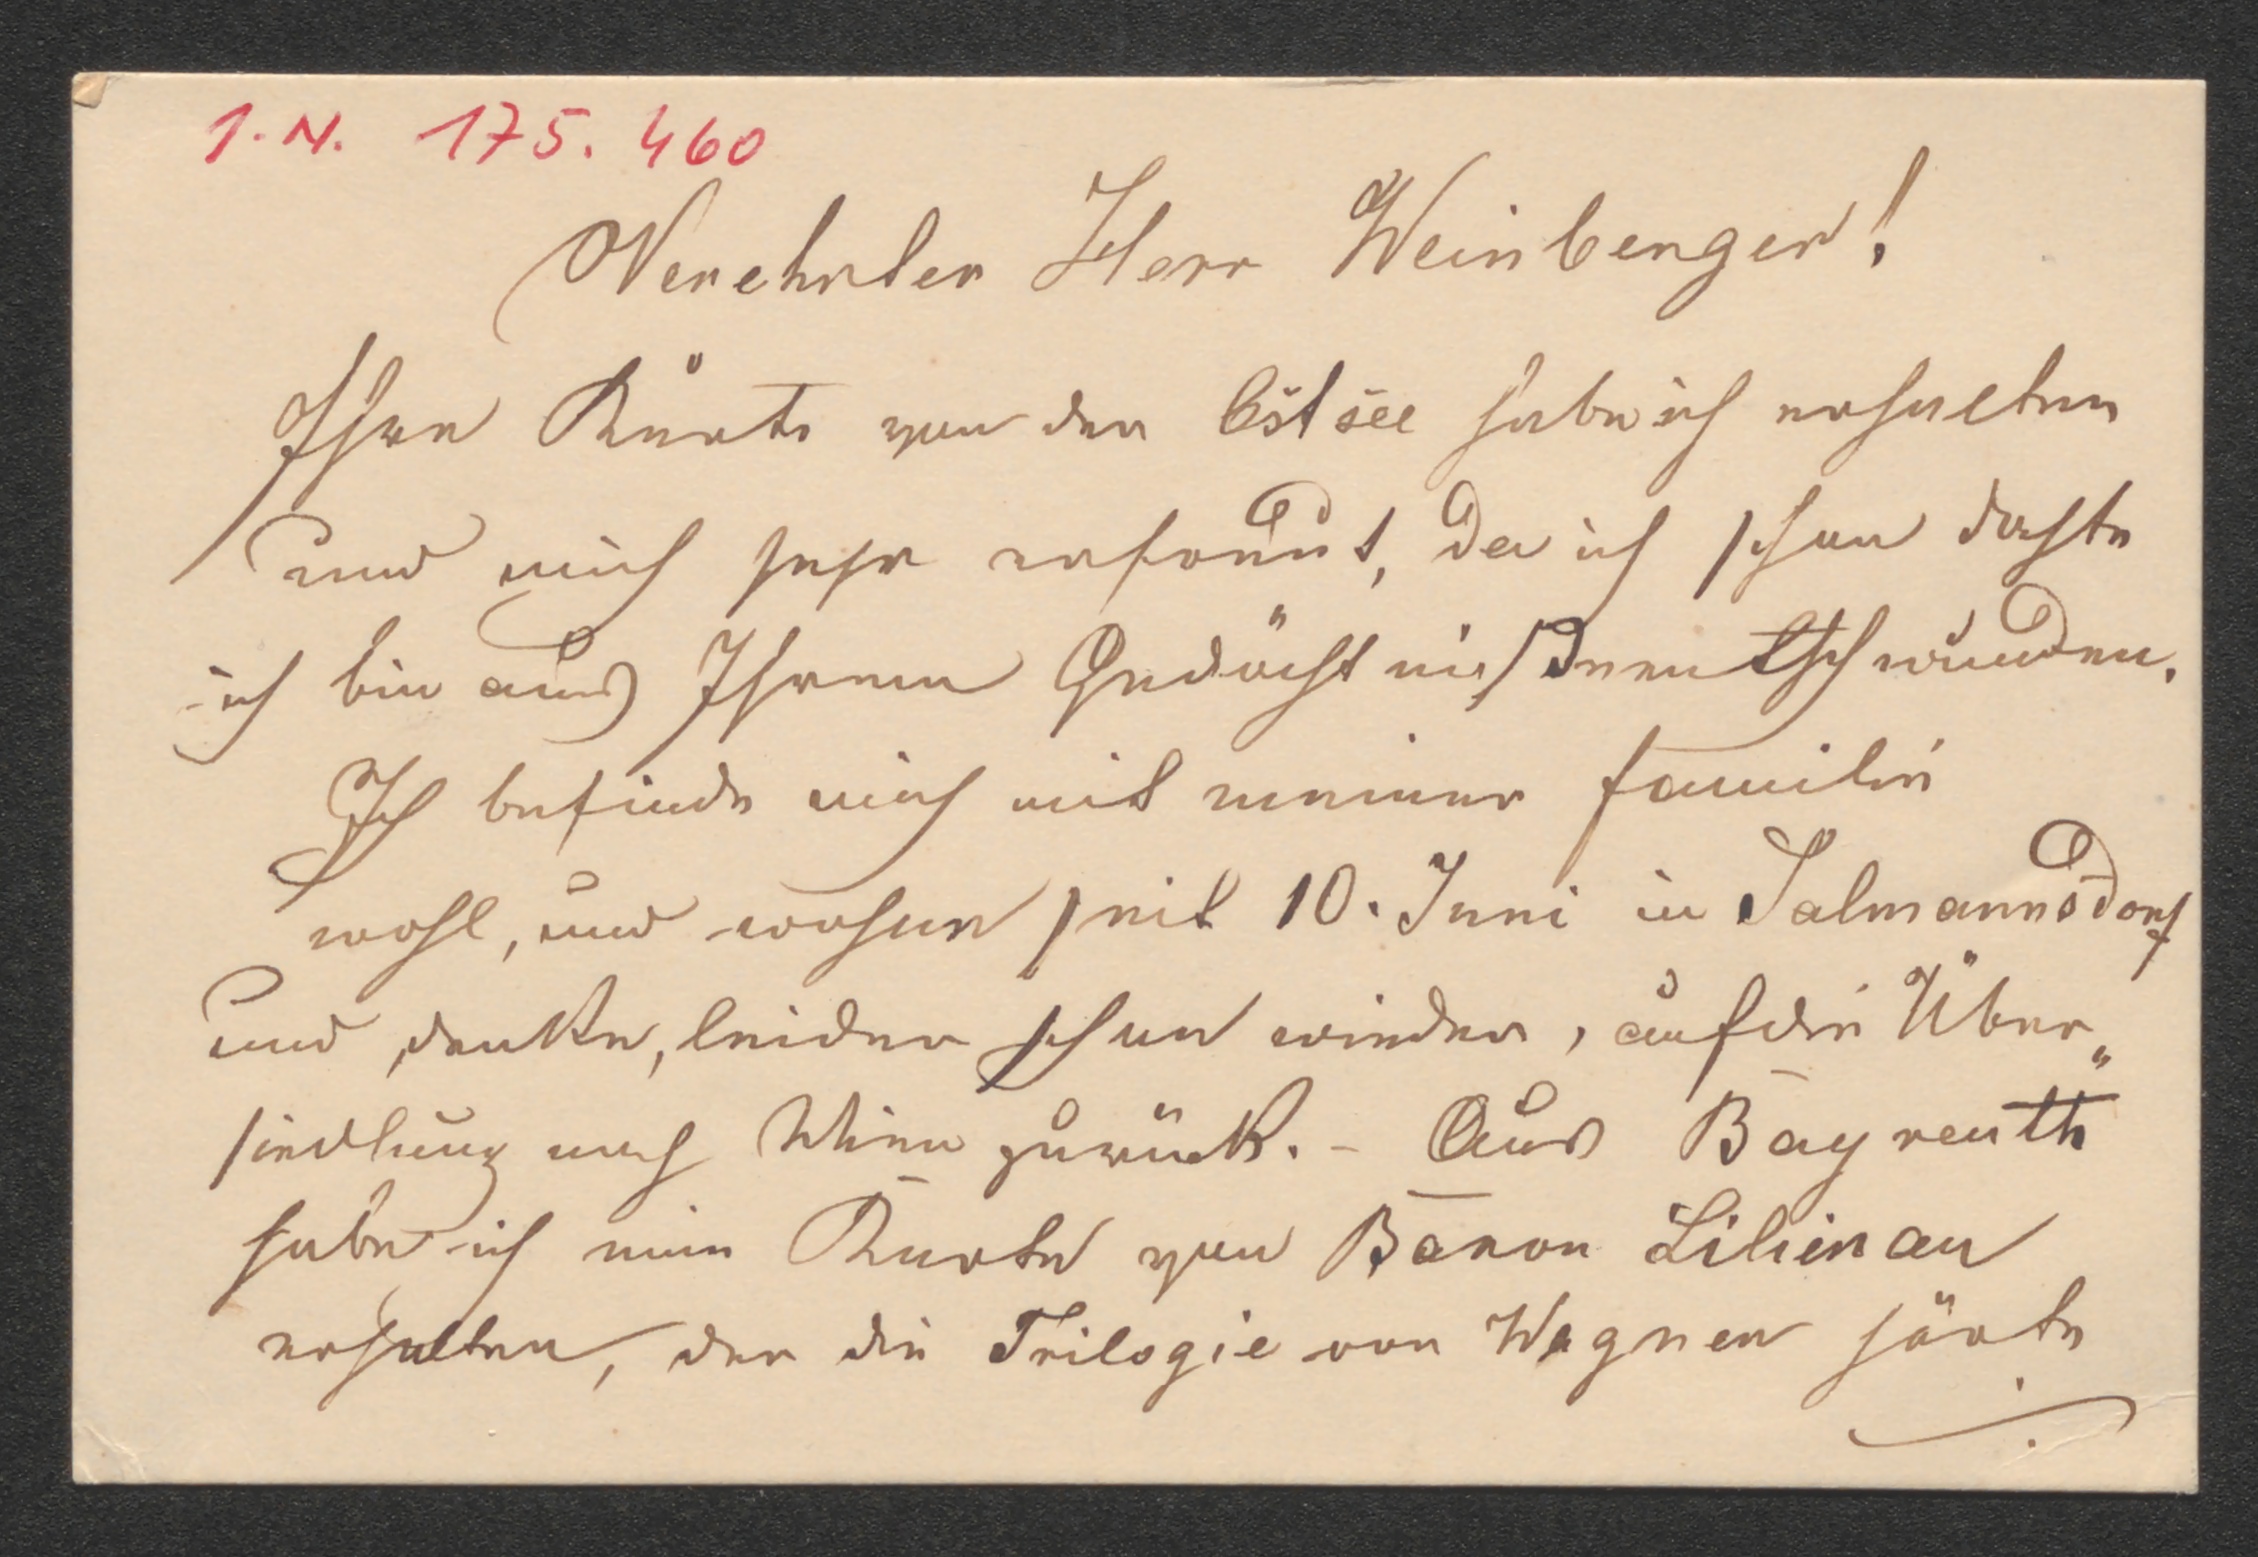 I.N. 175.460
Verehrter Herr Weinberger!
Ihre Karte von der Ostsee habe ich erhalten
und mich sehr erfreut, da ich schon dachte
ich bin aus Ihrem Gedächtniß entschwunden.
Ich befinde mich mit meiner Familie
wohl, und wohne seit 10. Juni in Salmannsdorf
und denke, leider schon wieder, auf die Über„
siedlung nach Wien zurück. - Aus Bayreuth
habe ich eine Karte von Baron Lilienau
erhalten, der die Trilogie von Wagner hörte